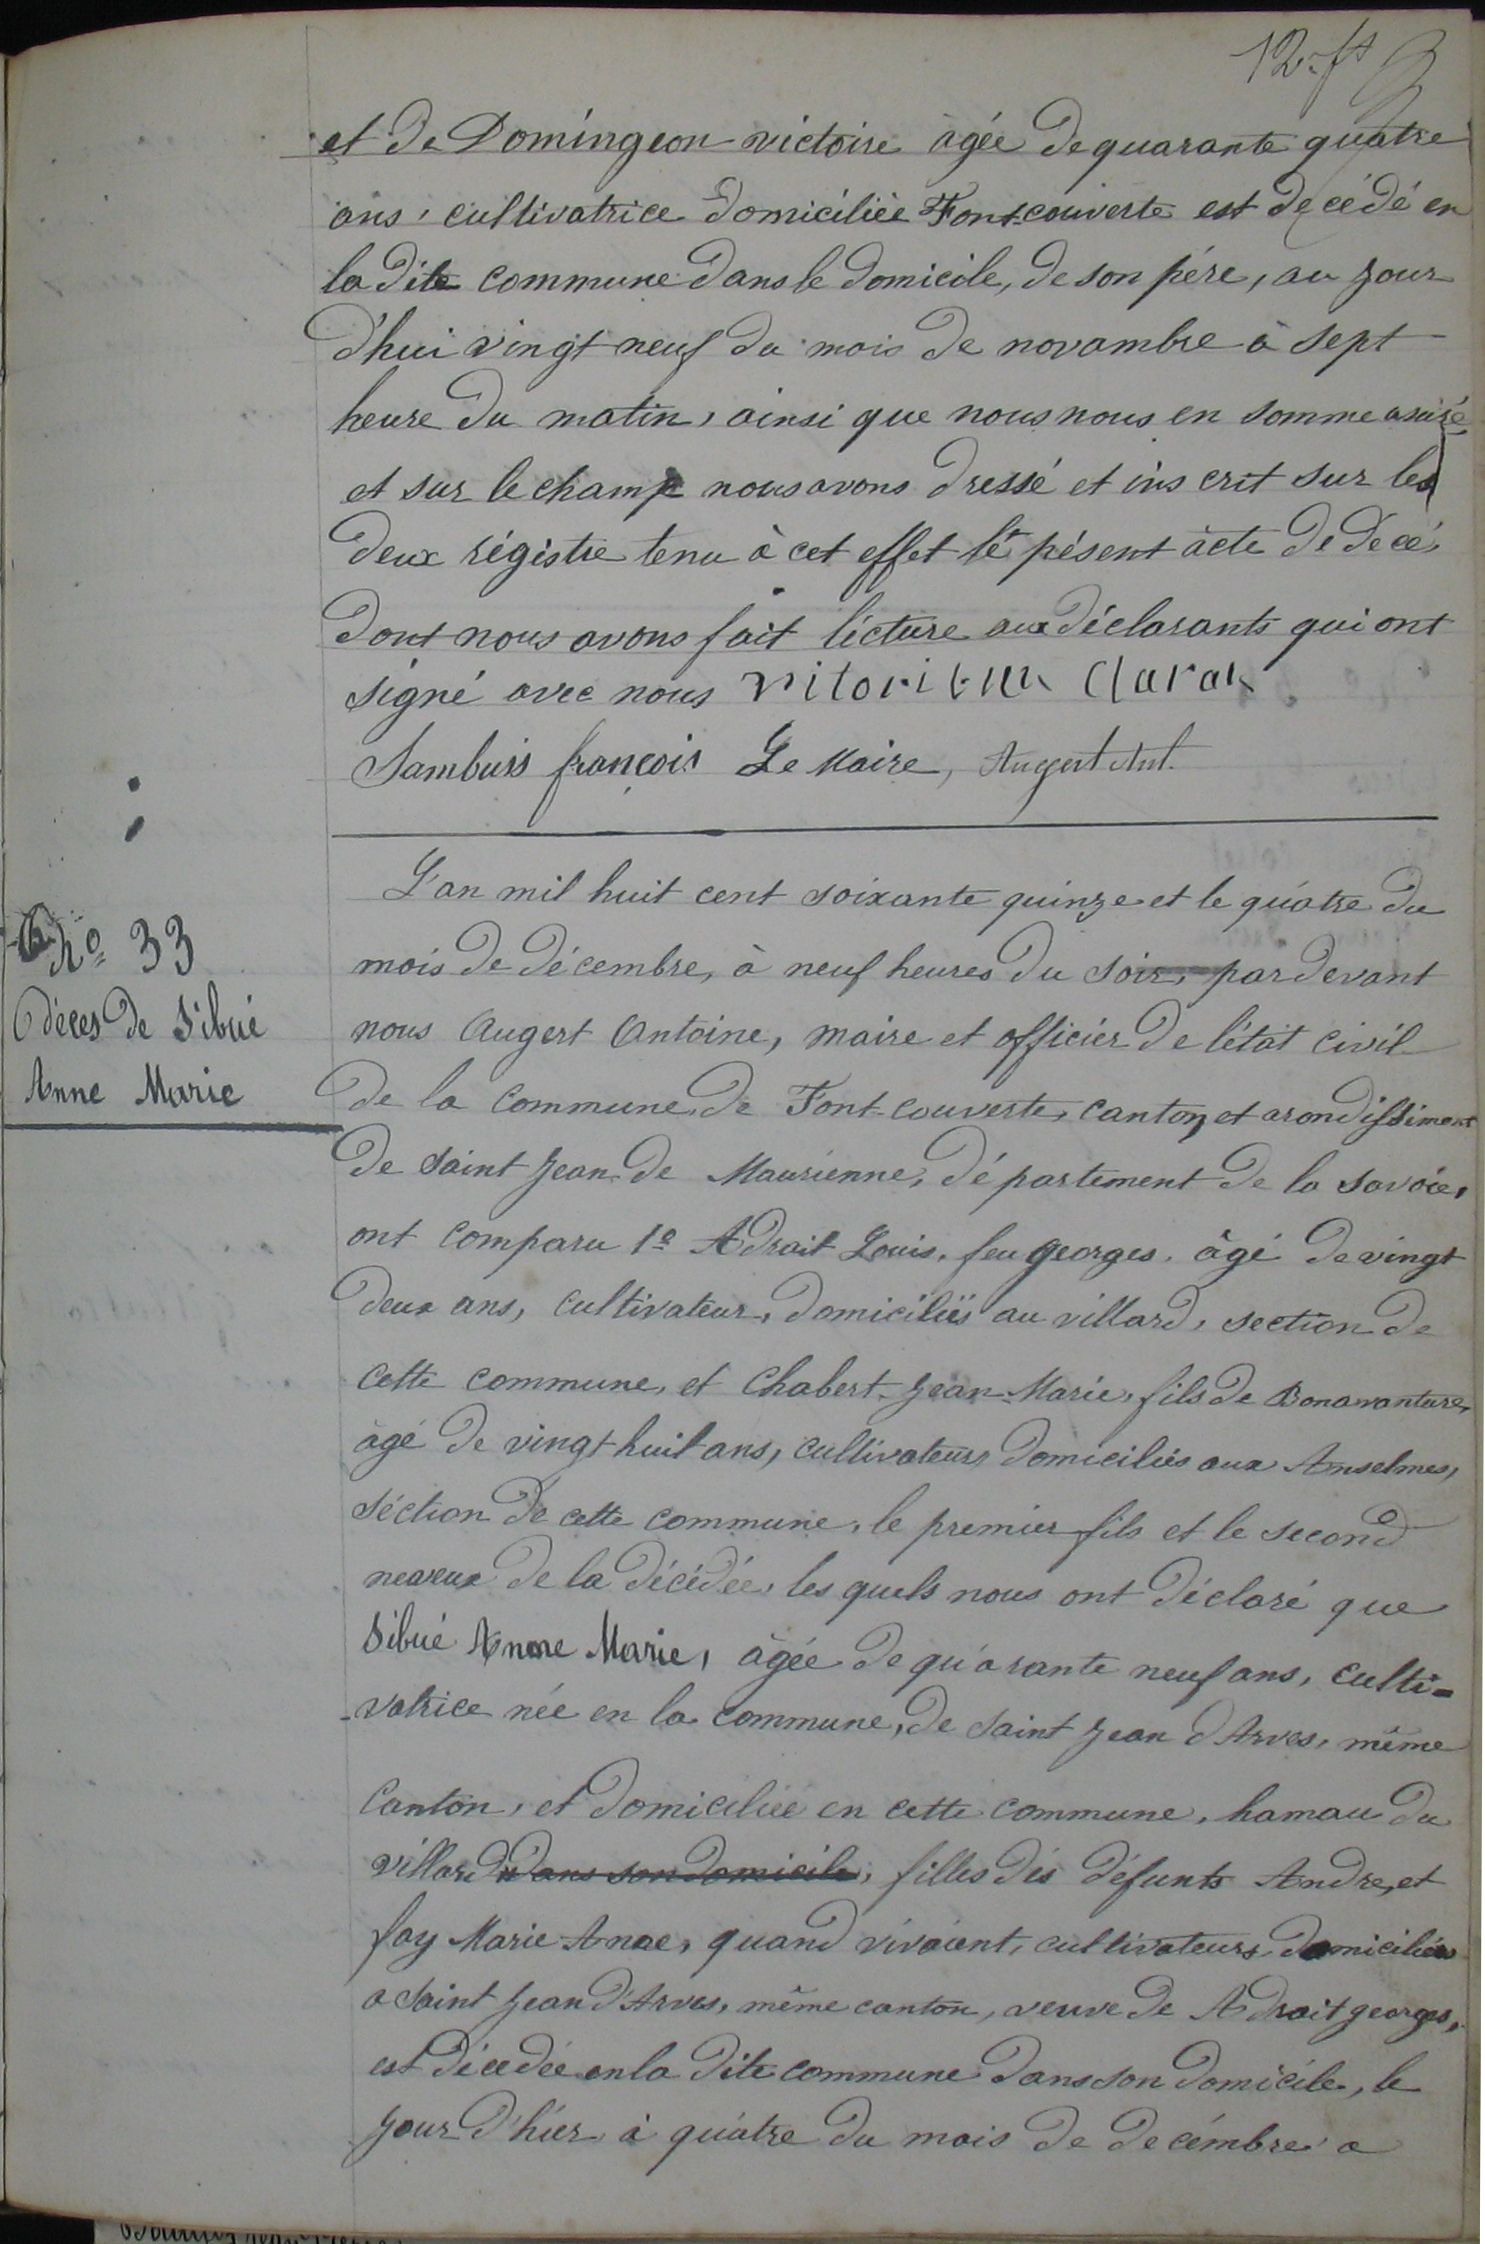 12.
et de Domingeon victoire àgée de quarante quatre
ans, cultivatrice domiciliée Font-couverte est decédé en
la dite commune dans le domicile, de son pére, au jour
d'hui vingt neuf du mois de novambre à sept
heure du matin, ainsi que nous nous en somme asuré,
et sur le champ nous avons dressé et inscrit sur les
deux régistre tenu à cet effet le pésent àcte de decé,
dont nous avons fait lécture aux déclarants qui ont
signé avec nous
Sambuis françois Le Maire, Augert Ant.
L'an mil huit cent soixante quinze et le quatre du
mois de décembre, à neuf heures du soir, par devant
nous Augert Antoine, maire et officiér de l'état civil
de la commune de Font-couverte, canton et arondissiment
de saint Jean de Maurienne, département de la savoie,
ont comparu 1º Adrait Louis, feu georges, âgé de vingt
deux ans, cultivateur, domiciliés au villard, section de
cette commune, et Chabert Jean-Marie, fils de Bonavanture,
âgé de vingt huit ans, cultivateurs domiciliés aux Anselmes,
séction de cette commune, le premier fils et le second
neveux de la décédée, les quels nous ont déclaré que
Sibué Anne Marie, âgée de quarante neuf ans, culti-
-vatrice née en la commune, de saint Jean d'Arves, même
Canton, et domiciliée en cette commune, hamau du
villard dans son domicile, filles dés défunts Andre, et
fay Marie Anne, quand vivaient, cultivateurs domiciliés
a saint Jean d'Arves, même canton, veuve de Adrait georges,
est décedée en la dite commune dans son domicile, le
jour d'hier à quatre du mois de decémbre a
Nº 33
décès de Sibué
Anne Marie